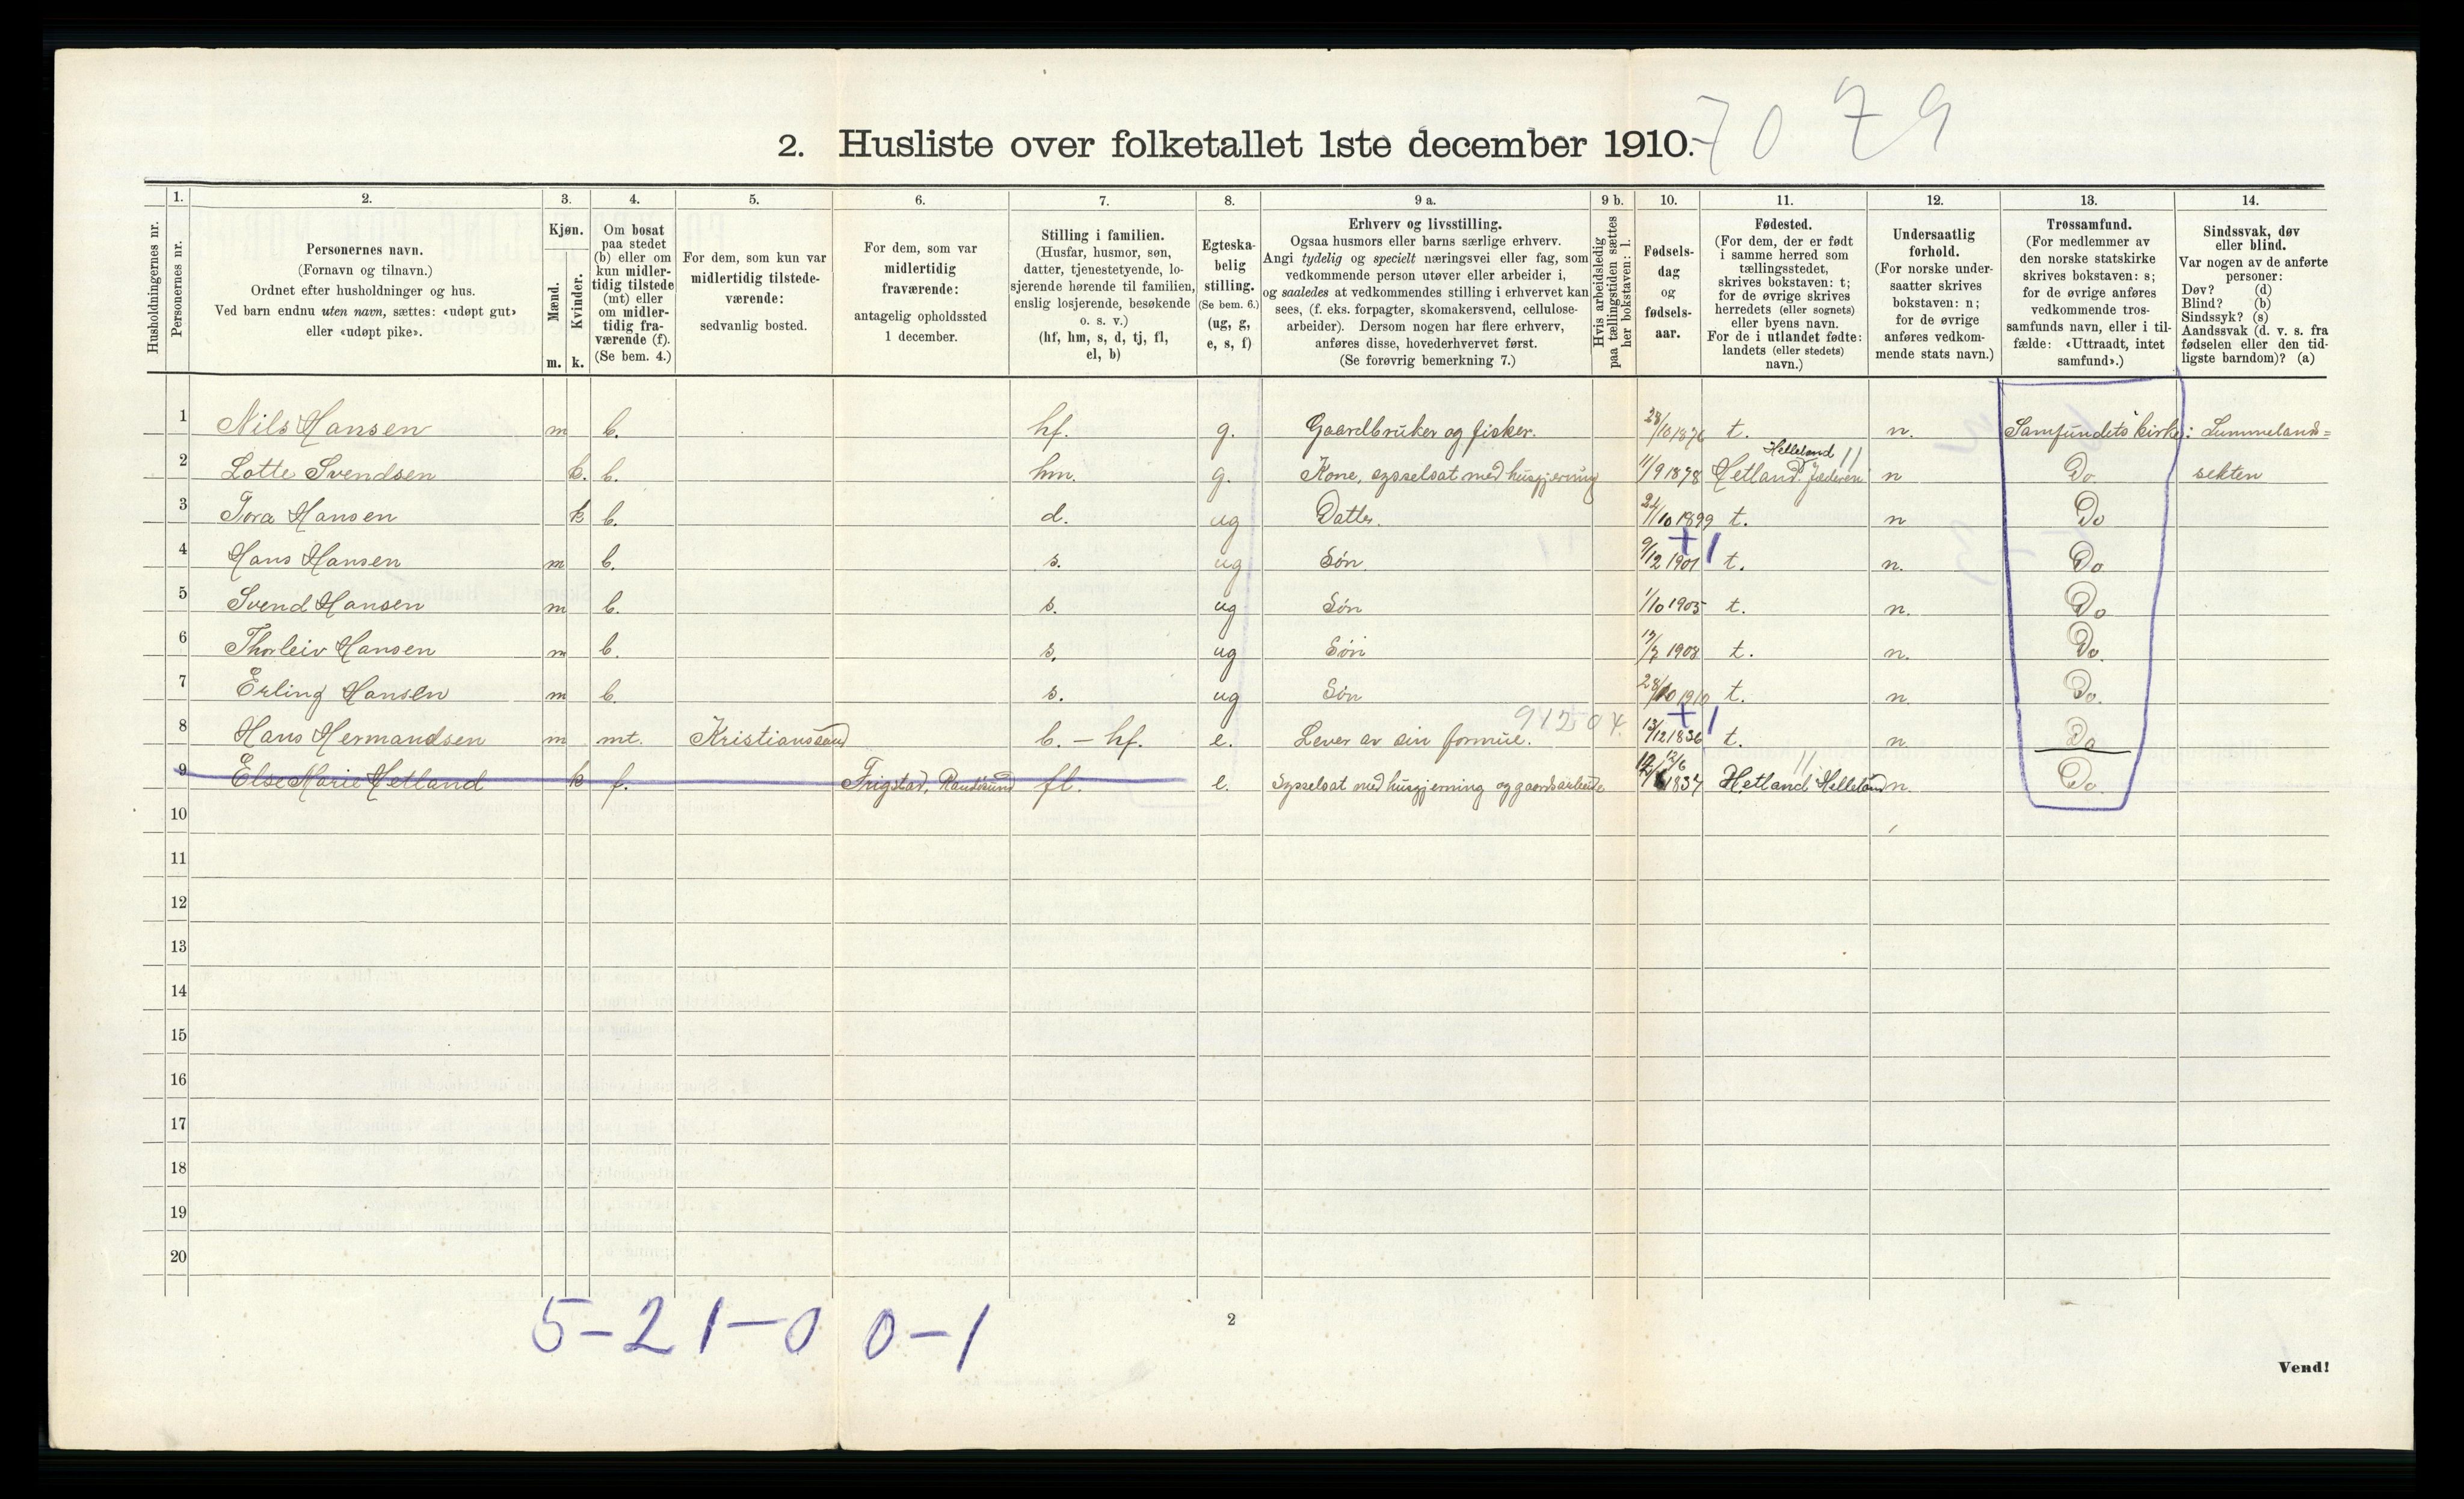 7079
2. Husliste over folketallet 1ste december 1910.
Husholdningernes nr.
1.
Personernes nr.
2.
Personernes navn.
(Fornavn og tilnavn.)
Ordnet efter husholdninger og hus.
Ved barn endnu uten navn, sættes: «udøpt gut»
eller «udøpt pike».
3.
Kjøn.
Mænd.
Kvinder.
m. k.
4.
Om bosat
paa stedet
(b) eller om
kun midler-
tidig tilstede
(mt) eller
om midler-
tidig fra-
værende (f).
(Se bem. 4.)
5.
For dem, som kun var
midlertidig tilstede-
værende:
sedvanlig bosted.
6.
For dem, som var
midlertidig
fraværende:
antagelig opholdssted
1 december.
7.
Stilling i familien.
(Husfar, husmor, søn,
datter, tjenestetyende, lo-
sjerende hørende til familien,
enslig losjerende, besøkende
o. s. v.)
(hf, hm, s, d, tj, fl,
el, b)
8.
Egteska-
belig
stilling.
(Se bem. 6.)
(ug, g,
e, s, f)
9 a.
Erhverv og livsstilling.
Ogsaa husmors eller barns særlige erhverv.
Angi tydelig og specielt næringsvei eller fag, som
vedkommende person utøver eller arbeider i,
og saaledes at vedkommendes stilling i erhvervet kan
sees, (f. eks. forpagter, skomakersvend, cellulose-
arbeider). Dersom nogen har flere erhverv,
anføres disse, hovederhvervet først.
(Se forøvrig bemerkning 7.)
9 b.
Hvis arbeidsledig
paa tællingstiden sættes
her bokstaven: l.
10.
Fødsels-
dag
og
fødsels-
aar.
11.
Fødested.
(For dem, der er født
i samme herred som
tællingsstedet,
skrives bokstaven: t;
for de øvrige skrives
herredets (eller sognets)
eller byens navn.
For de i utlandet fødte:
landets (eller stedets)
navn.)
12.
Undersaatlig
forhold.
(For norske under-
saatter skrives
bokstaven: n;
for de øvrige
anføres vedkom-
mende stats navn.)
13.
Trossamfund.
(For medlemmer av
den norske statskirke
skrives bokstaven: s;
for de øvrige anføres
vedkommende tros-
samfunds navn, eller i til-
fælde: «Uttraadt, intet
samfund».)
14.
Sindssvak, døv
eller blind.
Var nogen av de anførte
personer:
Døv? (d)
Blind? (b)
Sindssyk? (s)
Aandssvak (d. v. s. fra
fødselen eller den tid-
ligste barndom)? (a)
1 Nils Hansen m b. hf. g. Gaardbruker og fisker. 28/10 1876 t. n. Samfundets kirke: Lummelands=
Helleland
2 Lotte Svendsen k. b. hm. g. Kone, sysselsat med husgjerning 11/9 1878 Hetland. Jæderen n Do. sekten
3 Tora Hansen k b. d. ug Datter. 21/10 1899 t. n Do
4 Hans Hansen m b. s. ug Søn. 9/12 1901 t. n. Do
5 Svend Hansen m b. s. ug Søn 1/10 1905 t. n. Do
6 Thorleiv Hansen m b. s. ug Søn 1908 t. n. Do.
7 Erling Hansen m b. s. ug Søn 28/10 1910 t. n. Do.
8 Hans Hermandsen m mt. Kristianssand b. - hf. e. Lever av sin formue. 13/12 1836 t. n. Do
12/6
9 Else Marie Hetland k f. Frigstad, Randøsund fl. e. Sysselsat med husgjerning og gaardsarbeide 1837 Hetland Helleland n. Do.
10
11
12
13
14
15
16
17
18
19
20
5-21-0 0-1
2
Vend!